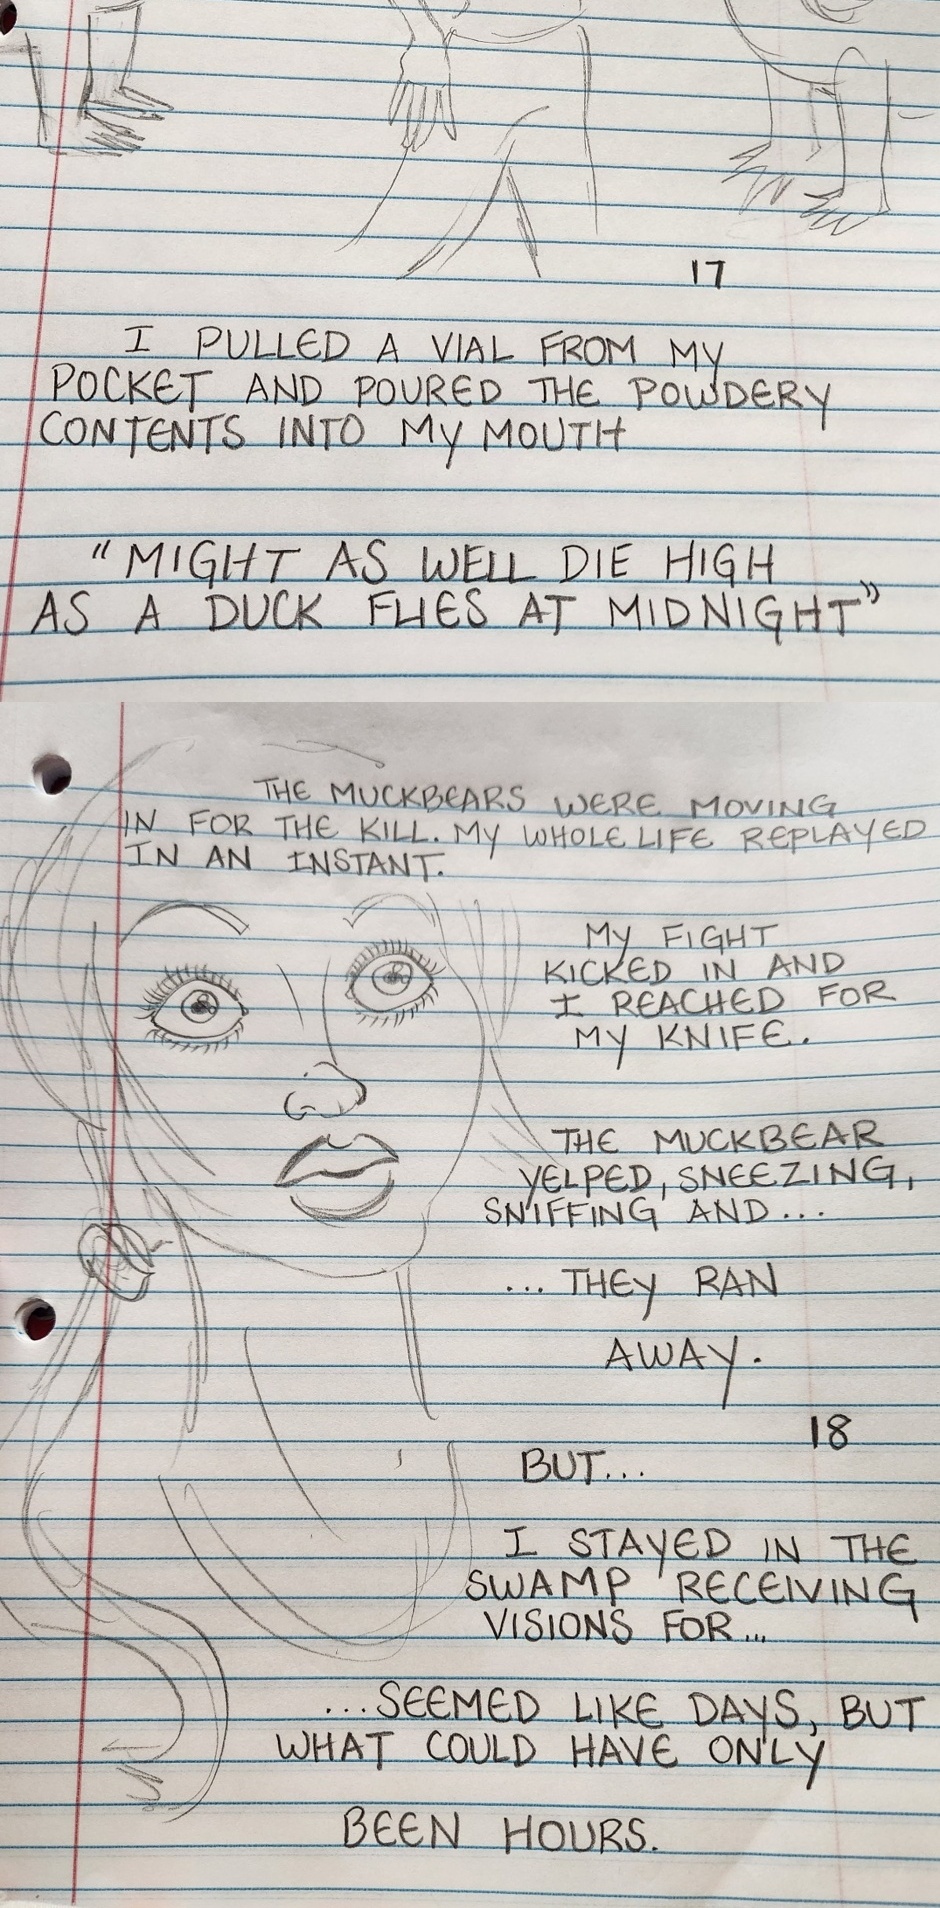 17
I PULLED A VIAL FROM MY
POCKET AND POURED THE POWDERY
CONTENTS INTO MY MOUTH
"MIGHT AS WELL DIE HIGH
AS A DUCK FLIES AT MIDNIGHT"
THE MUCKBEARS WERE MOVING
IN FOR THE KILL. MY WHOLE LIFE REPLAYED
IN AN INSTANT.
MY FIGHT
KICKED IN AND
I REACHED FOR
MY KNIFE.
THE MUCKBEAR
YELPED, SNEEZING,
SNIFFING AND...
...THEY RAN
AWAY.
18
BUT...
I STAYED IN THE
SWAMP RECEIVING
VISIONS FOR...
...SEEMED LIKE DAYS, BUT
WHAT COULD HAVE ONLY
BEEN HOURS.